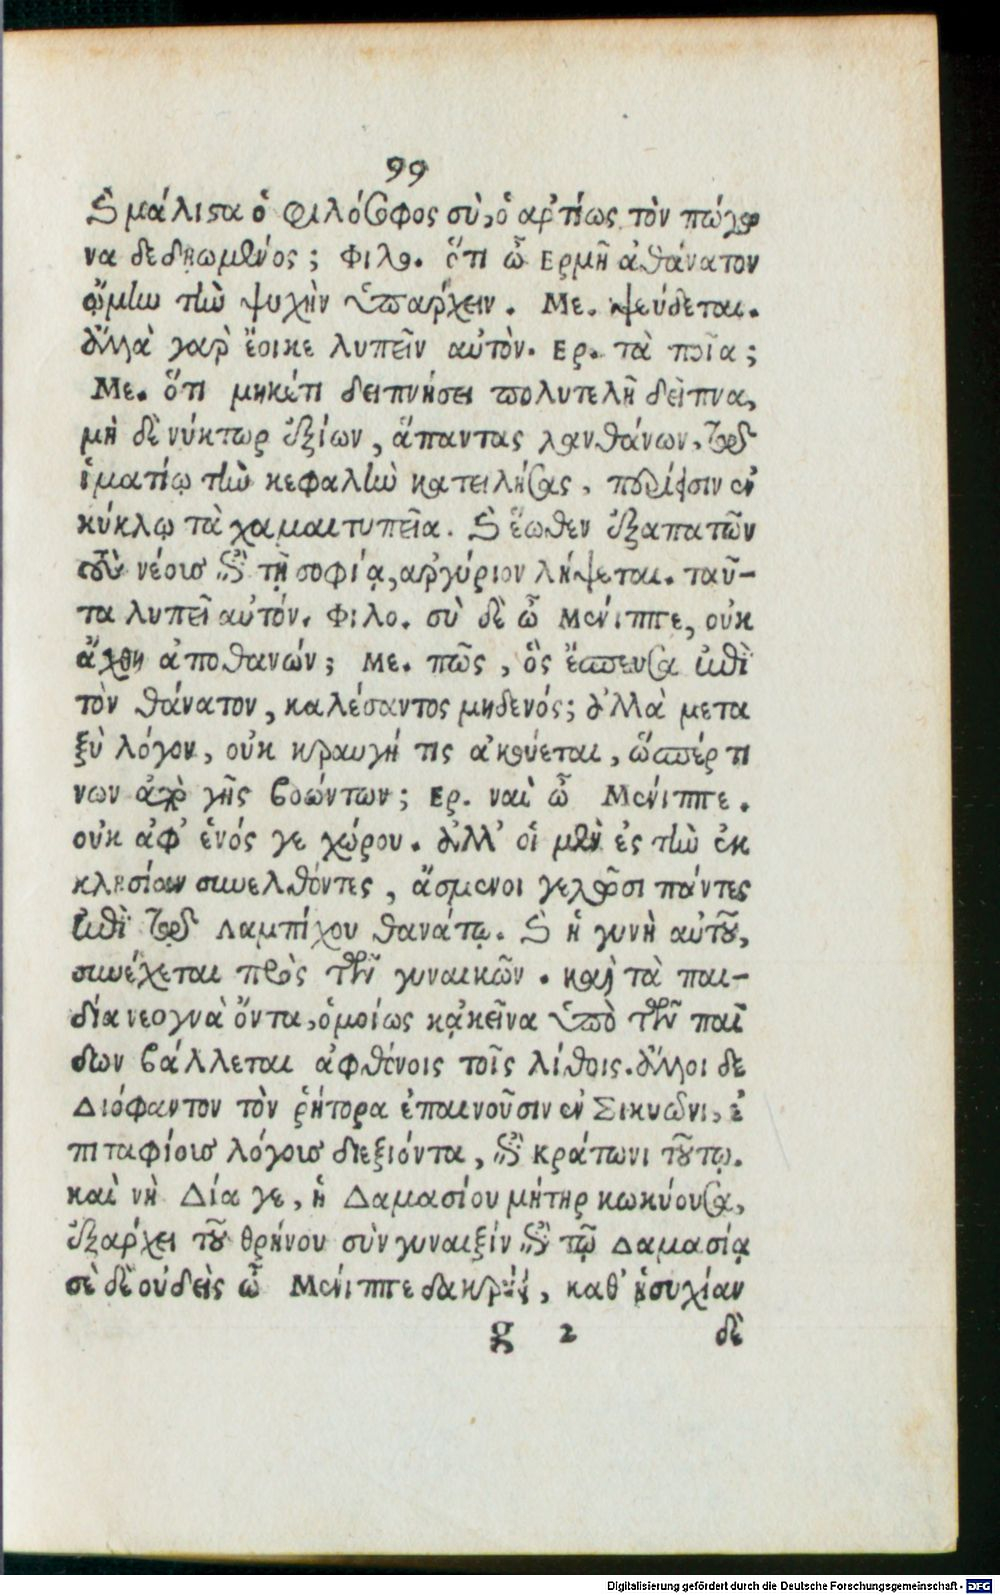 99
καὶ μάλιστα ὁ φιλόσοφος σὺ, ὁ ἀρτίως τὸν πώγω
να δεδῃωμένος; Φιλο. ὅτι ὦ Ερμῆ ἀθάνατον
ᾤμην τὴν ψυχὴν ὑπάρχειν. Με. ψεύδεται.
ἄλλα γαρ ἔοικε λυπεῖν αὐτὸν. Ερ. τὰ ποῖα;
Με. ὅτι μηκέτι δειπνήσει πολυτελῆ δεῖπνα,
μὴ δὲ νύκτωρ ἐξίων, ἅπαντας λανθάνων, τῷ
ἱματίῳ τὴν κεφαλὴν κατειλήσας, περίεισιν ἐν
κύκλῳ τὰ χαμαιτυπεῖα. καὶ ἕωθεν ἐξαπατῶν
τοὺς νέους ἐπὶ τῇ σοφίᾳ, ἀργύριον λήψεται. ταῦ-
τα λυπεῖ αὐτόν. Φιλο. σὺ δὲ ὦ Μένιππε, οὐκ
ἄχθῃ ἀποθανών; Με. πῶς, ὃς ἔσπευσα ἐπὶ
τὸν θάνατον, καλέσαντος μηδενός; ἀλλὰ μετα
ξὺ λόγον, οὐκ κραυγή τις ἀκούεται, ὥσπέρ τι
νων ἀπὸ γῆς βοώντων; Ερ. ναὶ ὦ Μένιππε.
οὐκ ἀφ' ἑνός γε χώρου. ἀλλ' οἱ μὲν ἐς τὴν ἐκ
κλησίαν συνελθόντες, ἄσμενοι γελῶσι πάντες
ἐπὶ τῷ Λαμπίχου θανάτῳ. καὶ ἡ γυνὴ αὐτοῦ,
συνέχεται πρὸς τῶν γυναικῶν. καὶ τὰ παι-
δία νεογνὰ ὄντα, ὁμοίως κἀκεῖνα ὑπὸ τῶν παί
δων βάλλεται ἀφθόνοις τοῖς λίθοις. ἄλλοι δε
Διόφαντον τὸν ῥήτορα ἐπαινοῦσιν ἐν Σικυῶνι, ἐ
πιταφίους λόγους διεξιόντα, ἐπὶ κράτωνι τούτῳ.
καὶ νὴ Δία γε, ἡ Δαμασίου μήτηρ κωκύουσα,
ἐξάρχει τοῦ θρήνου σὺν γυναιξίν ἐπὶ τῷ Δαμασίᾳ
σὲ δὲ οὐδεὶς ὦ Μένιππε δακρύει, καθ' ἡσυχίαν
g 2 δὲ
Digitalisierung gefördert durch die Deutsche Forschungsgemeinschaft - DFG